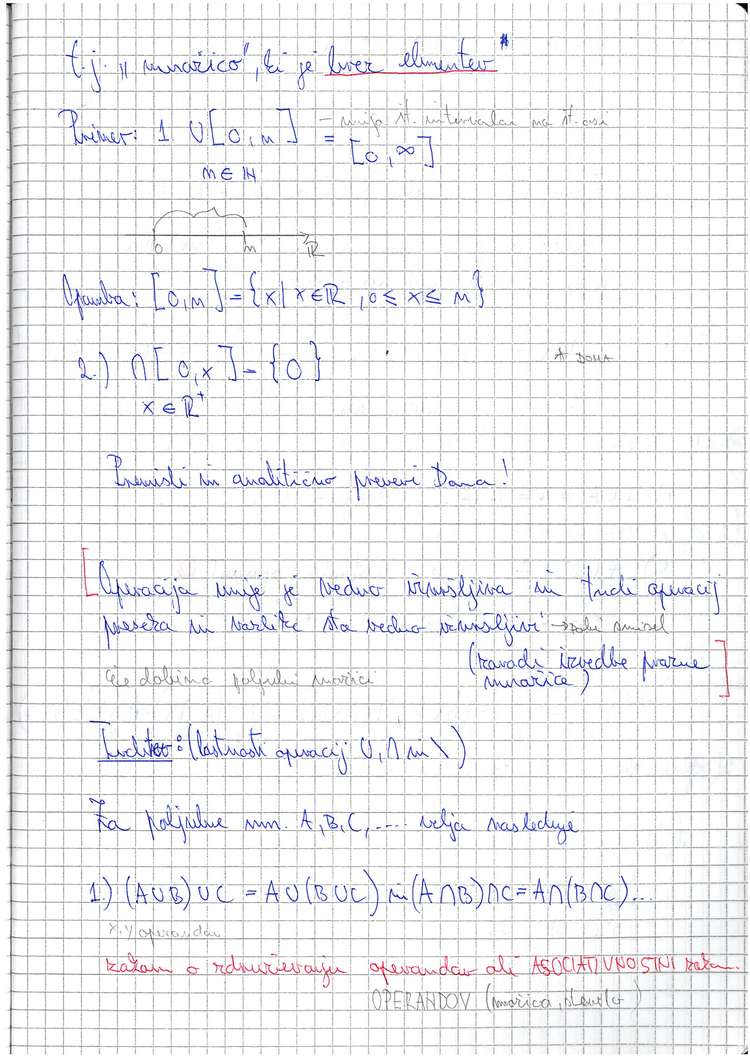 t.j. "množico", ki je brez elementov"
Primer: 1. ∪[0,n] = [0,∞] - unija št. intervalov na št. osi
n∈ℕ
0 n ℝ
Opomba: [0,n]={x| x∈ℝ, 0≤ x≤ n}
2.) ∩[0,x]={0} * DOMA
x∈ℝ⁺
Premisli in analitično preveri Doma!
[Operacija unije je vedno izvršljiva in tudi operacij
preseka in razlike sta vedno izvršljivi → dobi smisel
če dobimo poljubni množici (zaradi izvedbe prazne
množice)]
Trditev: (lastnosti operacij ∪,∩ in \)
Za poljubne mn. A,B,C,.... velja naslednje
1.) (A∪B)∪C = A∪(B∪C) in (A∩B)∩C=A∩(B∩C)...
x,y operandov
zakon o združevanju operandov ali ASOCIATIVNOSTNI zakon.
OPERANDOV (množica, število)